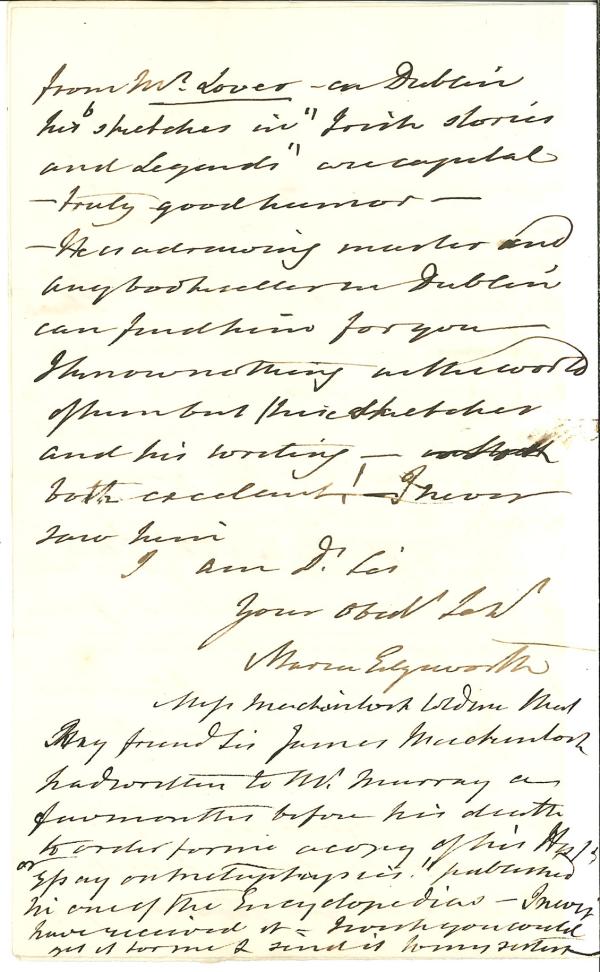 from Mr. Lover - in Dublin
his sketches in "Irish stories
and Legends" are capital
- truly good humor -
- He is a drawing master and
any bookseller in Dublin
can find him for you
I know nothing in the world
of him but his sketches
and his writing -
both excellent! - I never
saw him
I am Dr. Sir
Your Obedt
Maria Edgeworth
Miss Mackintosh told me that
my friend Sir James Mackintosh
had written to Mr. Murray a
few months before his death
to order for me a copy of his
or Essay on metaphysics." published
in one of the Encyclopedias - I never
have received it - I wish you would
get it for me & send it to my sisters